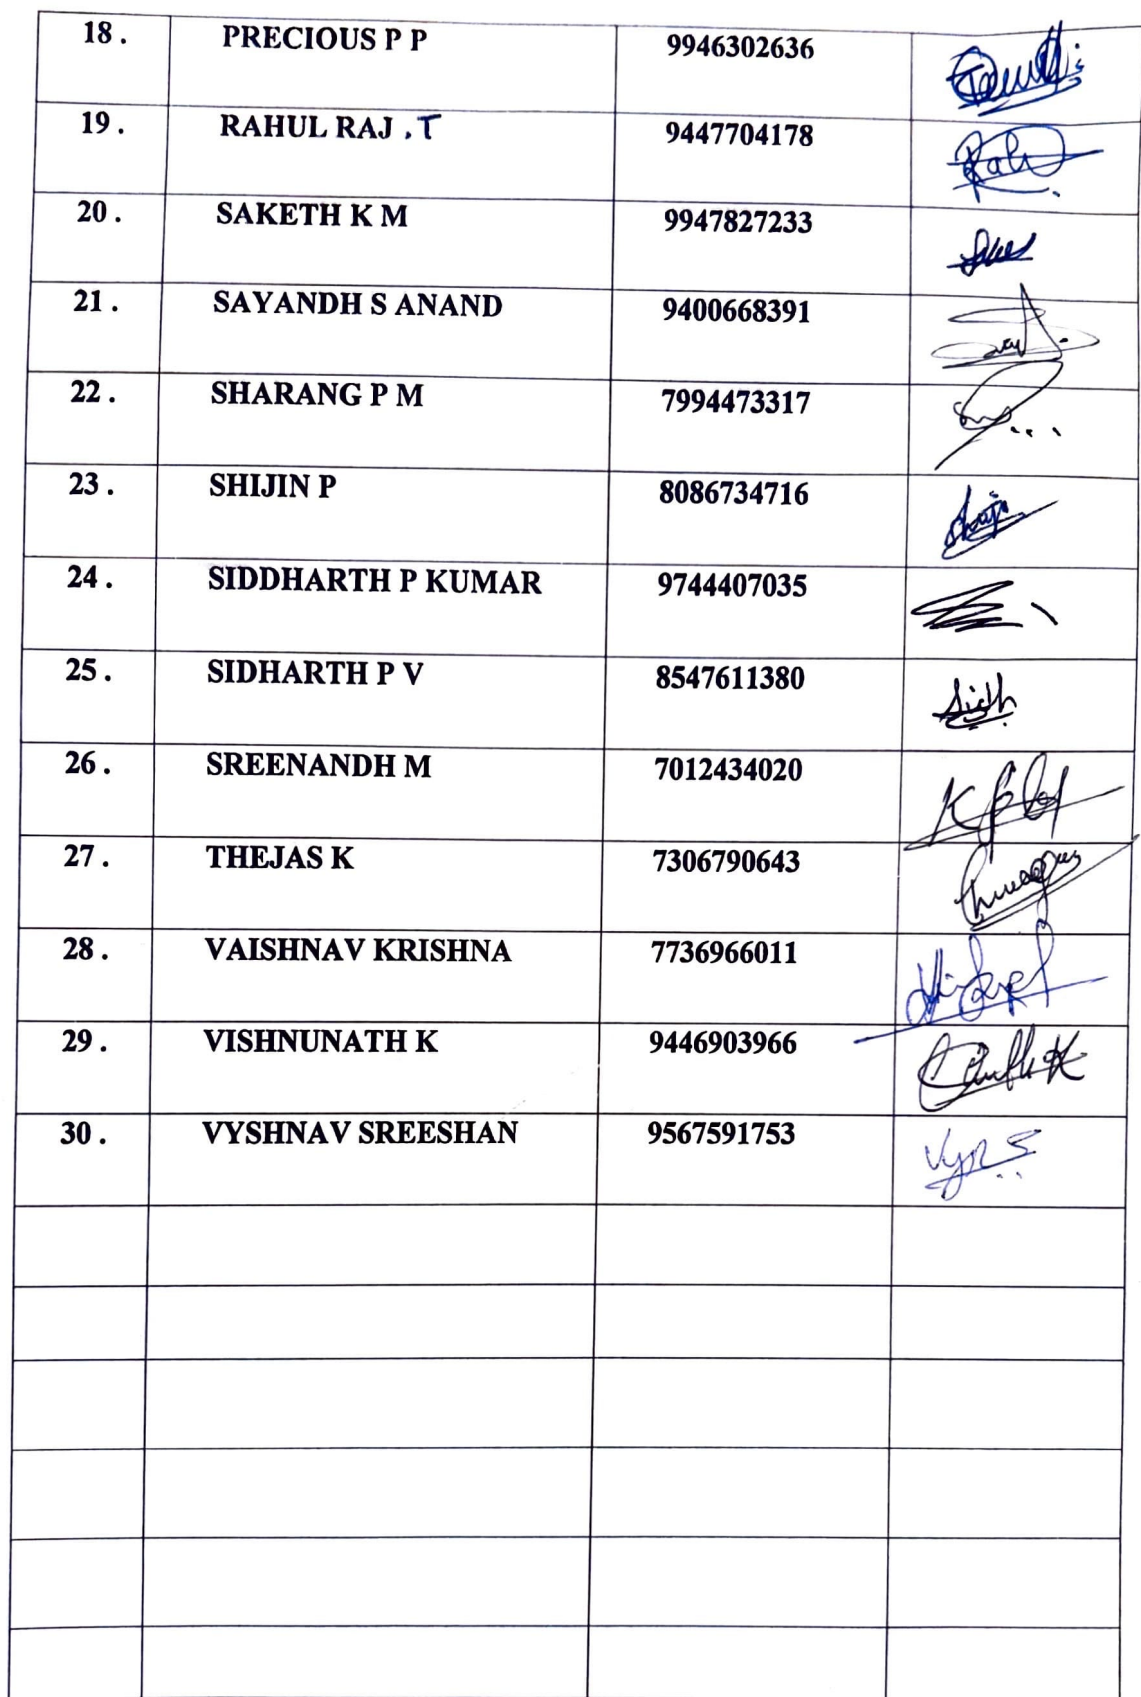 18. PRECIOUS P P 9946302636
19. RAHUL RAJ .T 9447704178
20. SAKETH K M 9947827233
21. SAYANDH S ANAND 9400668391
22. SHARANG P M 7994473317
23. SHIJIN P 8086734716
24. SIDDHARTH P KUMAR 9744407035
25. SIDHARTH P V 8547611380 Sidh
26. SREENANDH M 7012434020
27. THEJAS K 7306790643
28. VAISHNAV KRISHNA 7736966011
29. VISHNUNATH K 9446903966
30. VYSHNAV SREESHAN 9567591753